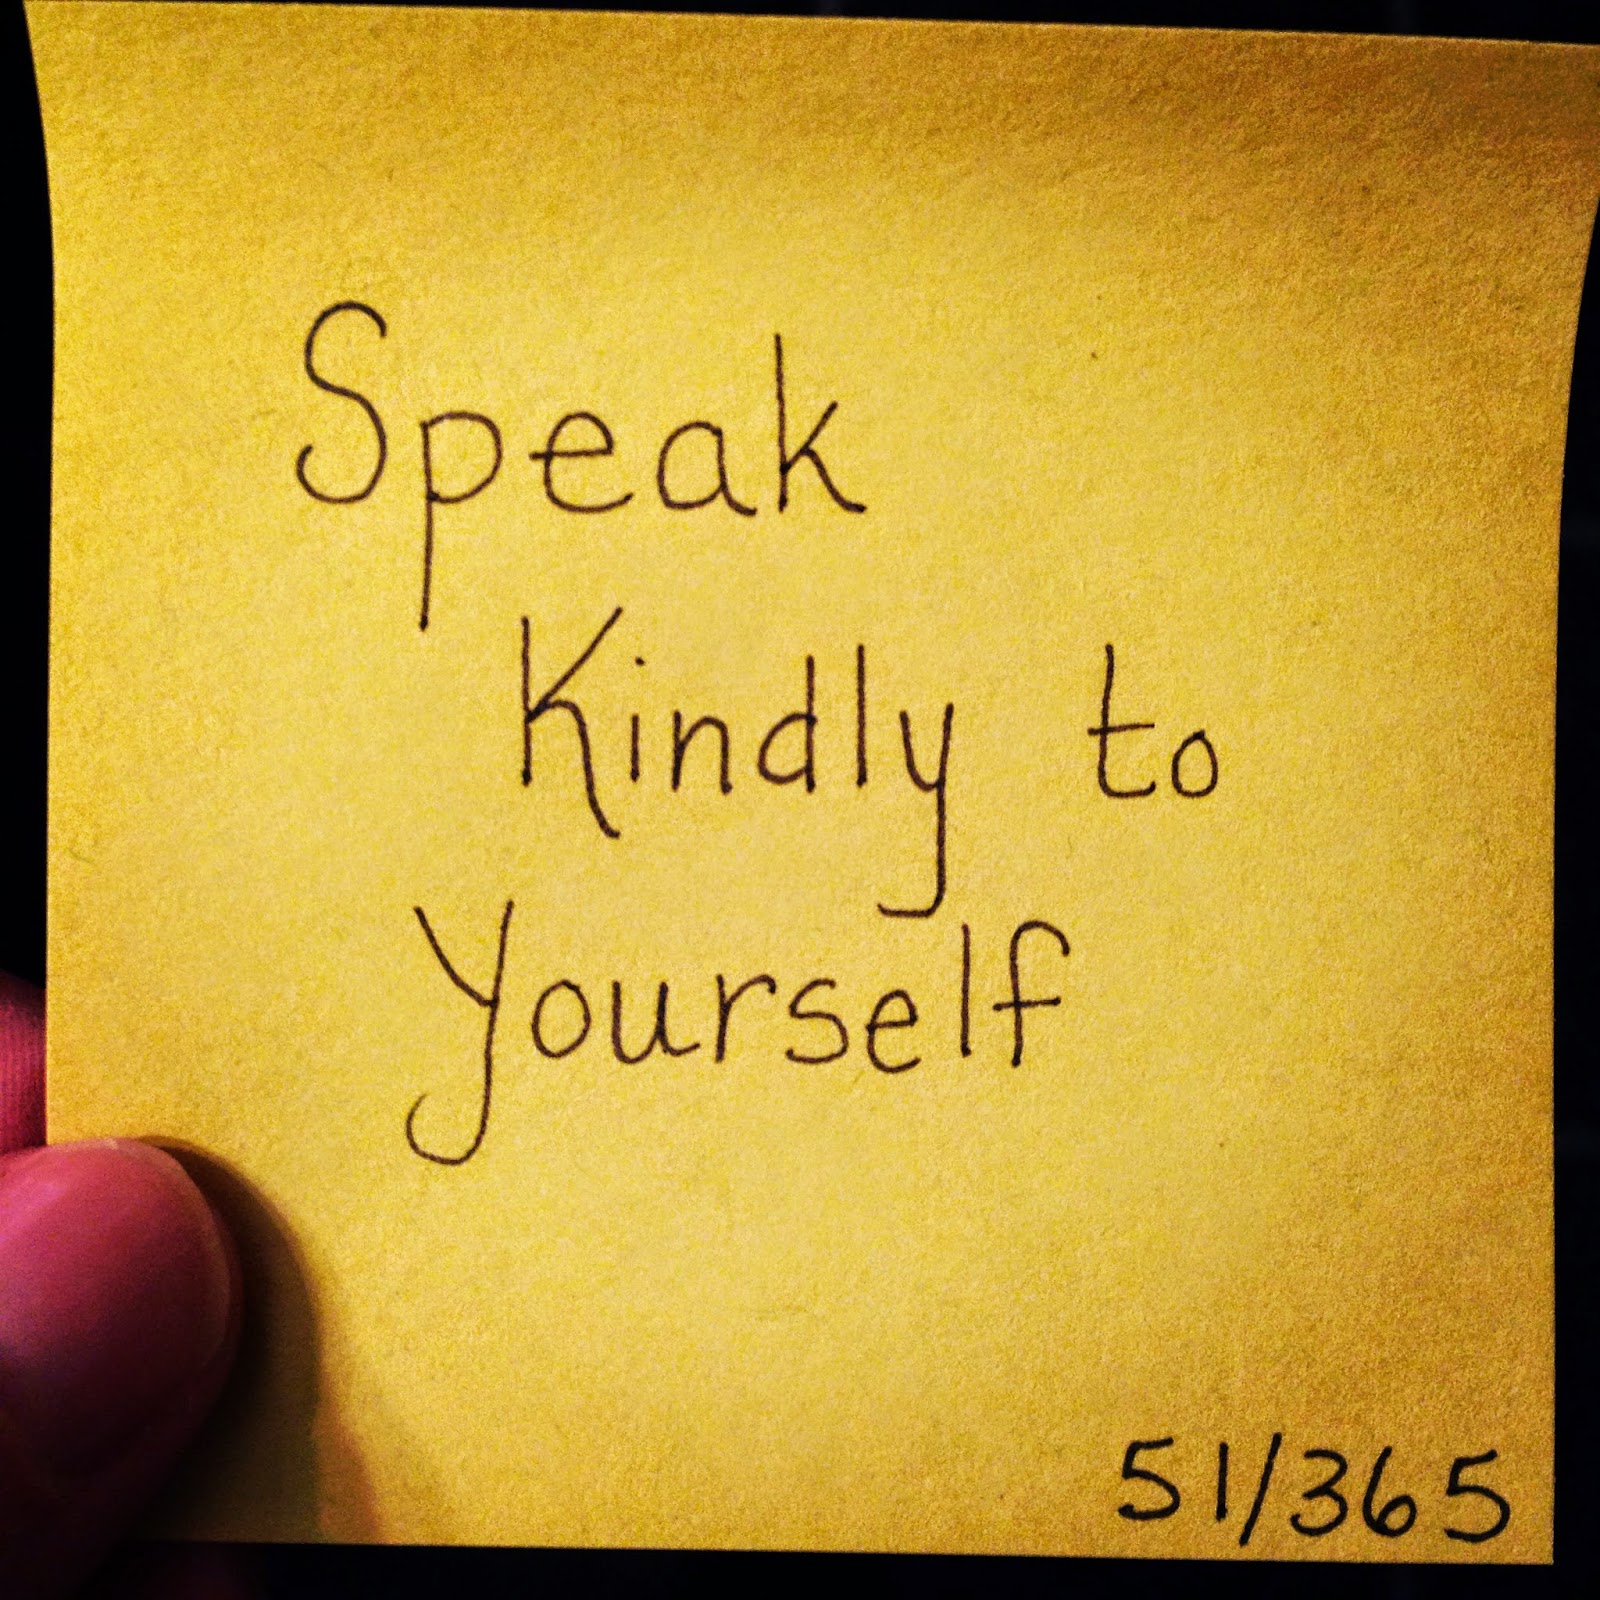 Speak
Kindly to
Yourself
51/365